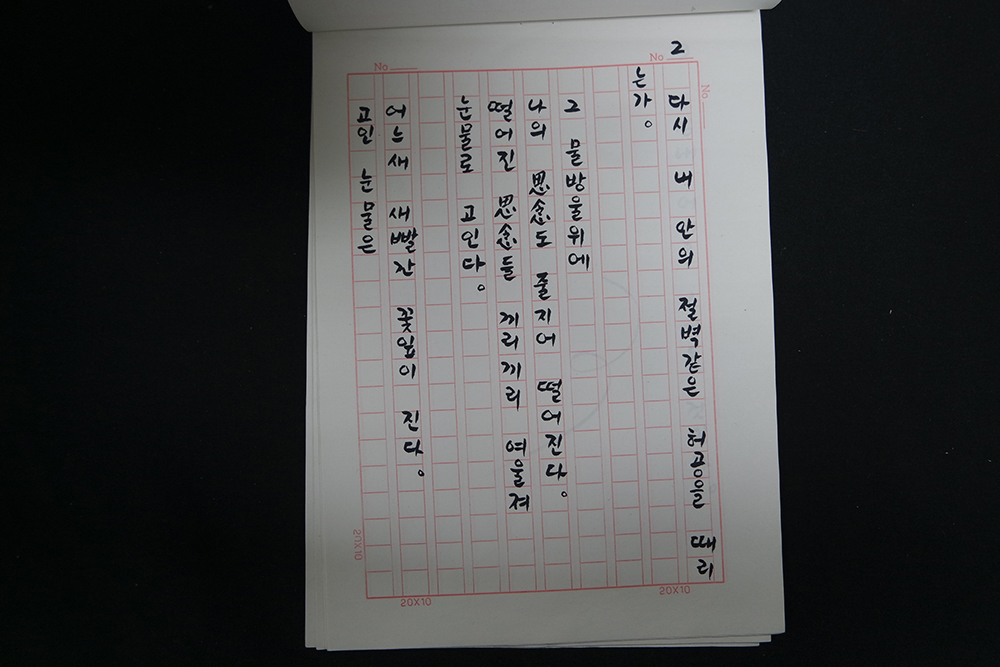 No. 2
No.
No.
다시 내 안의 절벽같은 허공을 때리
는가。
그 물방울위에
나의 思念도 줄지어 떨어진다。
떨어진 思念들 끼리끼리 여울져
눈물로 고인다。
어느새 새빨간 꽃잎이 진다。
고인 눈물은
20X10
20X10
20X10